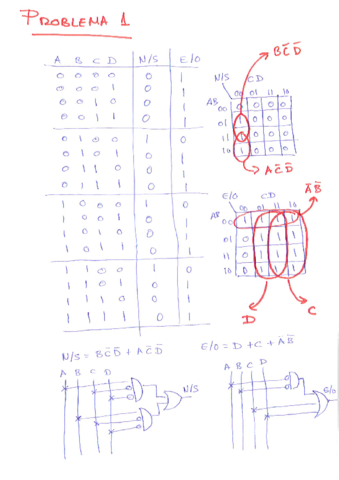 PROBLEMA 1
A B C D N/S E/O
0 0 0 0 0 1
0 0 0 1 0 1
0 0 1 0 0 1
0 0 1 1 0 1
0 1 0 0 1 0
0 1 0 1 0 1
0 1 1 0 0 1
0 1 1 1 0 1
1 0 0 0 1 0
1 0 0 1 0 1
1 0 1 0 0 1
1 0 1 1 0 1
1 1 0 0 1 0
1 1 0 1 0 1
1 1 1 0 0 1
1 1 1 1 0 1
BC̅D̅
N/S CD
AB 00 01 11 10
00 0 0 0 0
01 1 0 0 0
11 1 0 0 0
10 1 0 0 0
AC̅D̅
A̅B̅
E/O CD
AB 00 01 11 10
00 1 1 1 1
01 0 1 1 1
11 0 1 1 1
10 0 1 1 1
D C
N/S = BC̅D̅ + AC̅D̅
E/O = D + C + A̅B̅
A B C D N/S
A B C D E/O